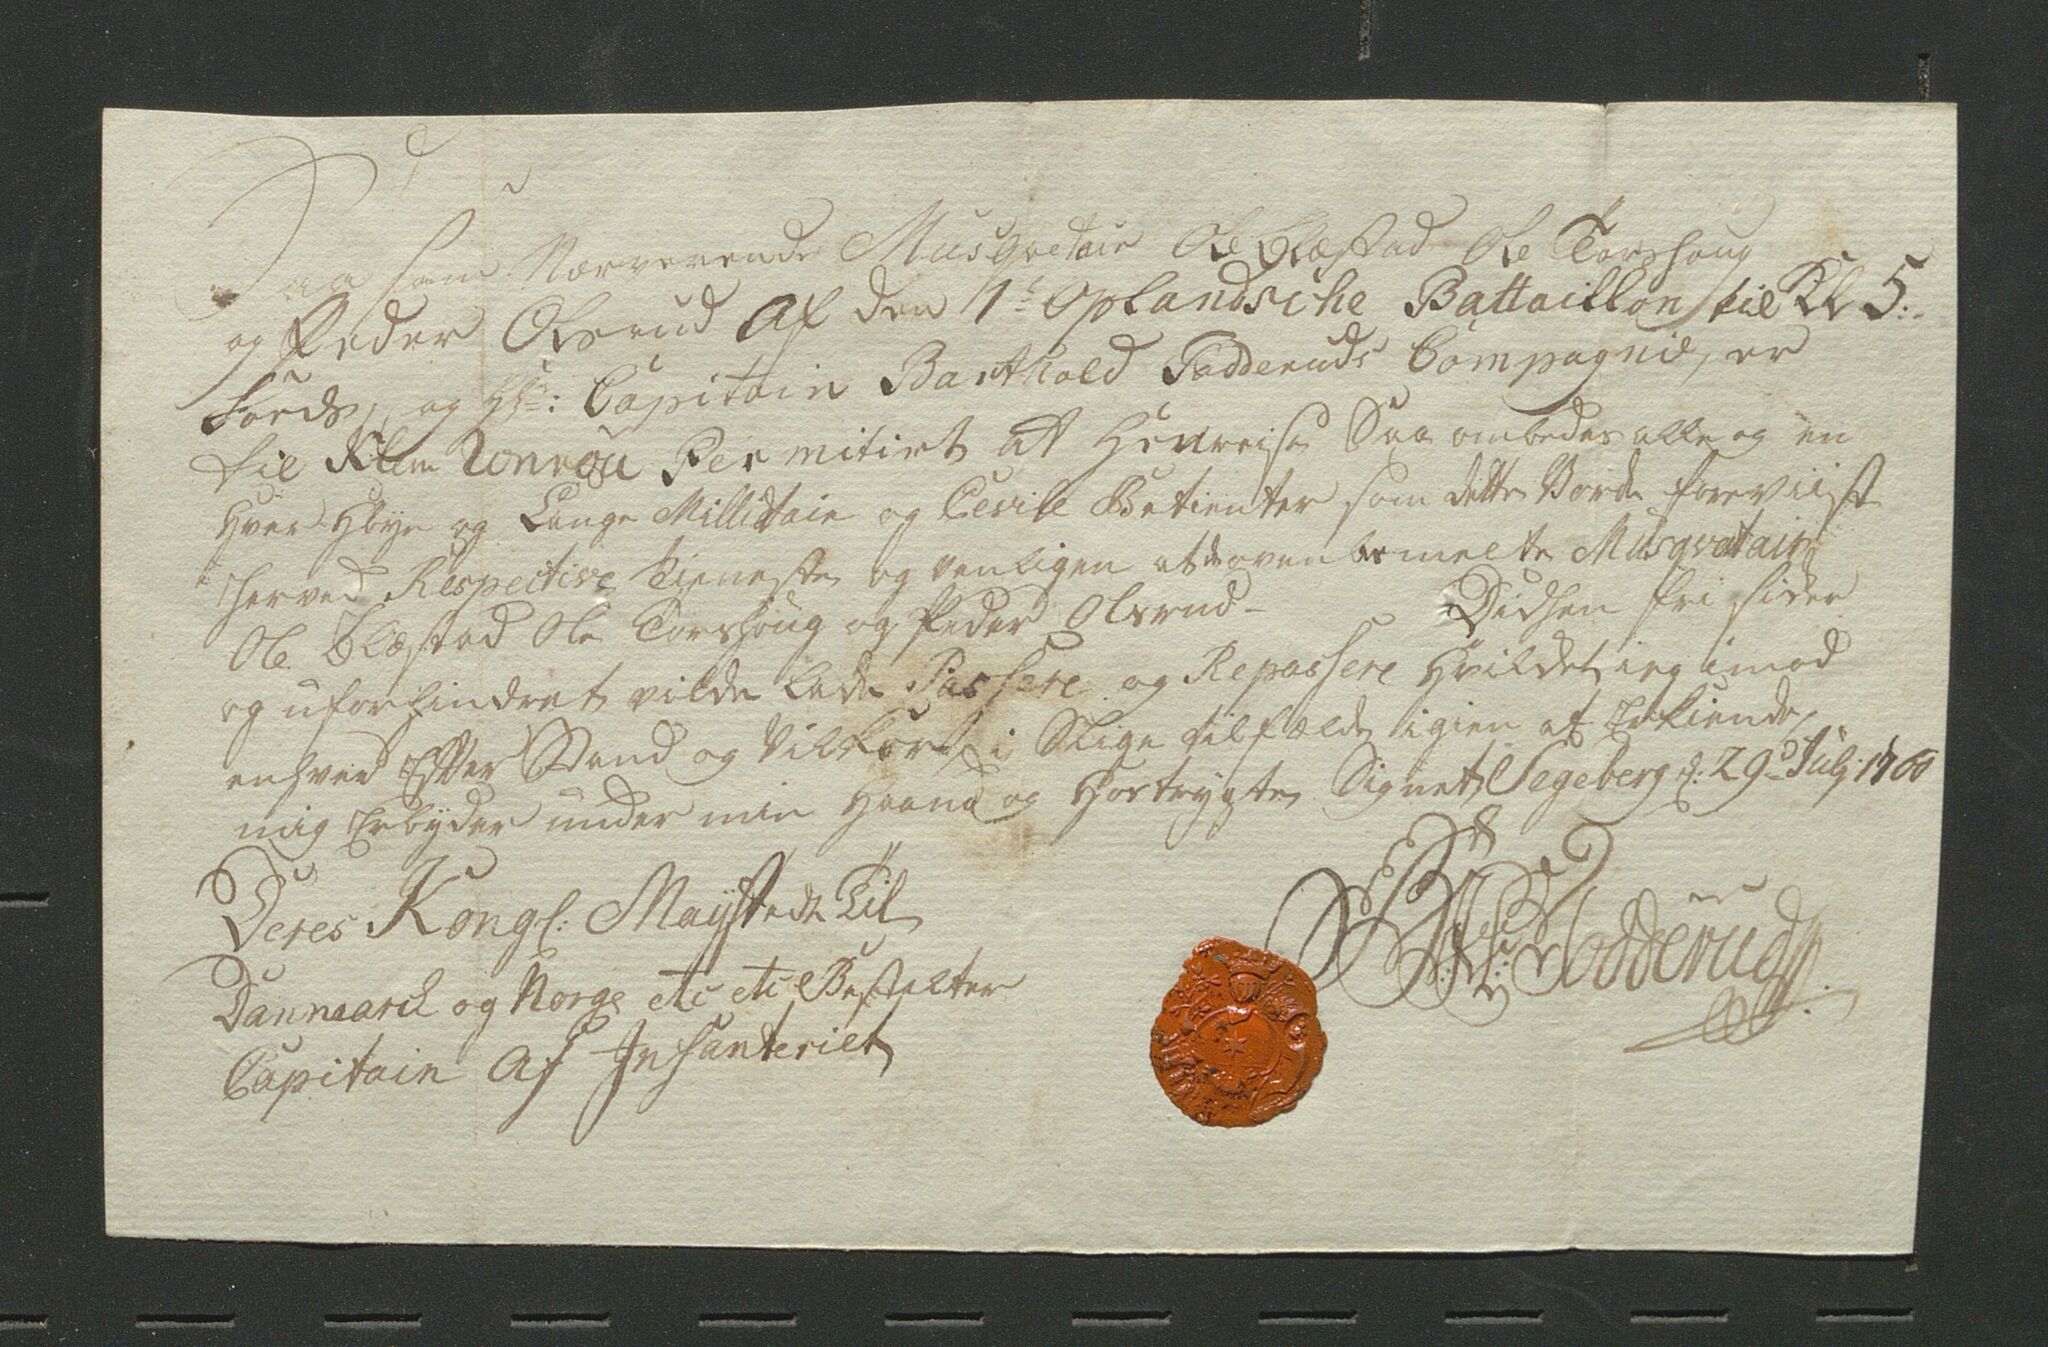 Saasom Nærverende Musqvetair Ole Blæstad Ole Torshoug
og Peder Olsrud Af den 1t Oplandsche Battaillon til Kl 5:
fords, og Hr: Capitain Barthold Todderuds Compagnie, er
til Permitirt at Henreise Saa ombedes alle og en
Hver Høye og Lauge Millitair og Cevile Betienter som dette Vorde foreviist
herved Respective tieneste og venligen at de ovenbemelte Musqvetair
Ole Blæstad Ole Torshoug og Peder Olsrud - Didhen fri sicker
og uforhindret vilde lade Passere og Repassere Hvildet ieg imod
enhver Efter Stand og Vilkor i Slige tilfælde igien at Erkiende
mig Erbyder under min Haand og Hostrygte Signet Segeberg d: 29d July 1760
Deres Kongl: Mayestedt Til
Dannmarck og Norge etc etc Bestalter
Capitain Af Infanteriet
Todderud